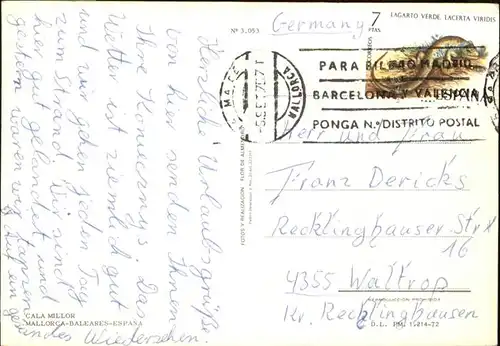 Nº 3.053
Germany
7
PTAS
LAGARTO VERDE. LACERTA VIRIDIS
PARA BILBAO MADRID
BARCELONA Y VALENCIA
PONGA N.º DISTRITO POSTAL
MALLORCA
Herzliche Urlaubsgrüße
von hier senden Ihnen
Ihre
Das
Wetter ist ziemlich gut
und wir gehen jeden Tag
zum Strand. Wir sind
hier gut gelandet und
gestern waren wir
Auf ein
gesundes Wiedersehen.
Herr und Frau
Franz Dericks
Recklinghauser Str
16
4355 Waltrop
Kr. Recklinghausen
FOTOS Y REALIZACION - FLOR DE ALMENDRO
REPRODUCCION PROHIBIDA
D. L. PM. 1214-72
CALA MILLOR
MALLORCA-BALEARES-ESPAÑA